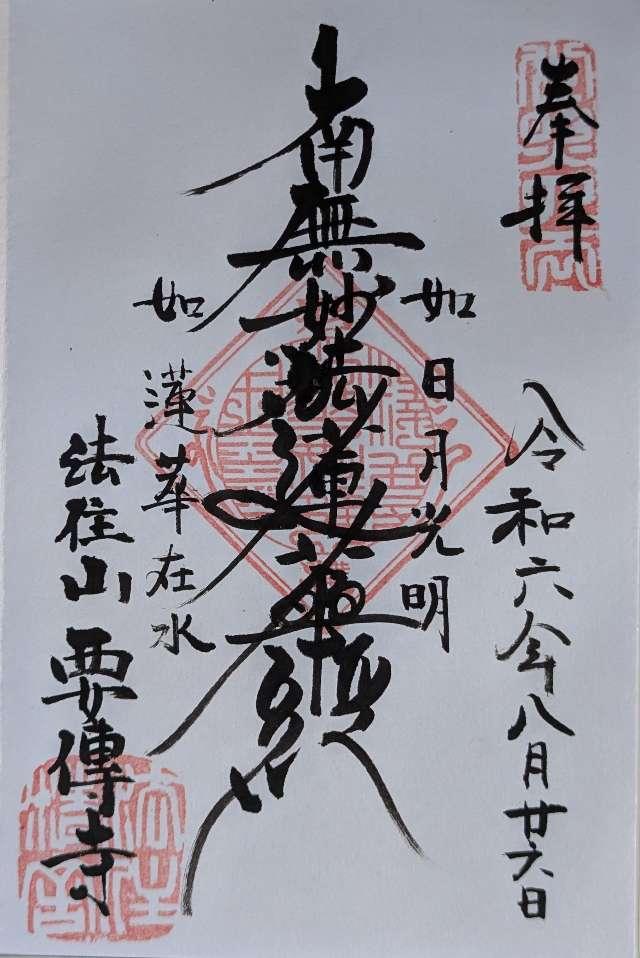 奉拝
令和六年八月廿六日
如日月光明
南無妙法蓮華経
如蓮華在水
法住山
要傳寺